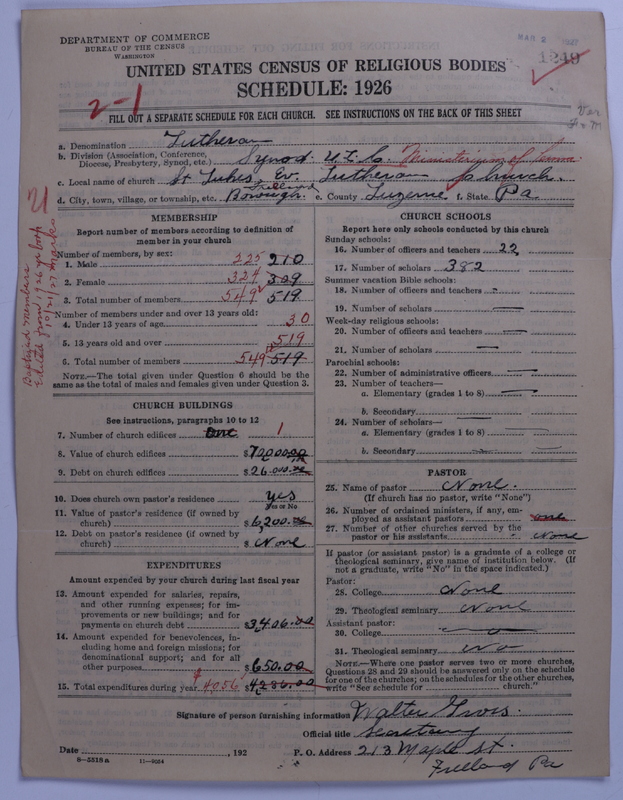 DEPARTMENT OF COMMERCE
BUREAU OF THE CENSUS
WASHINGTON
MAR 2 1927
1249
UNITED STATES CENSUS OF RELIGIOUS BODIES
SCHEDULE: 1926
2-1
FILL OUT A SEPARATE SCHEDULE FOR EACH CHURCH. SEE INSTRUCTIONS ON THE BACK OF THIS SHEET
a. Denomination Lutheran
b. Division (Association, Conference, Diocese, Presbytery, Synod, etc.) Synod. U.L.C. Ministerium of Penna.
c. Local name of church St Lukes Ev. Lutheran Church.
d. City, town, village, or township, etc. Freeland Borough. e. County Luzerne f. State Pa.
MEMBERSHIP
Report number of members according to definition of
member in your church
Number of members, by sex:
1. Male 225 210
2. Female 324 309
3. Total number of members 549 519
Number of members under and over 13 years old:
4. Under 13 years of age 30
5. 13 years old and over 519
6. Total number of members 549 519
NOTE.—The total given under Question 6 should be the
same as the total of males and females given under Question 3.
Baptized members
CHURCH BUILDINGS
See instructions, paragraphs 10 to 12
7. Number of church edifices One 1
8. Value of church edifices $70,000.00
9. Debt on church edifices $26,000.00
10. Does church own pastor's residence yes
Yes or No
11. Value of pastor's residence (if owned by
church) $6,200.00
12. Debt on pastor's residence (if owned by
church) $ None
EXPENDITURES
Amount expended by your church during last fiscal year
13. Amount expended for salaries, repairs,
and other running expenses; for im-
provements or new buildings; and for
payments on church debt $3,406.00
14. Amount expended for benevolences, in-
cluding home and foreign missions; for
denominational support; and for all
other purposes $650.00
15. Total expenditures during year $4056 $4,286.00
CHURCH SCHOOLS
Report here only schools conducted by this church
Sunday schools:
16. Number of officers and teachers 22
17. Number of scholars 382
Summer vacation Bible schools:
18. Number of officers and teachers
19. Number of scholars
Week-day religious schools:
20. Number of officers and teachers
21. Number of scholars
Parochial schools:
22. Number of administrative officers
23. Number of teachers—
a. Elementary (grades 1 to 8)
b. Secondary
24. Number of scholars—
a. Elementary (grades 1 to 8)
b. Secondary
PASTOR
25. Name of pastor None.
(If church has no pastor, write "None")
26. Number of ordained ministers, if any, em-
ployed as assistant pastors none
27. Number of other churches served by the
pastor or his assistants None
If pastor (or assistant pastor) is a graduate of a college or
theological seminary, give name of institution below. (If
not a graduate, write "No" in the space indicated.)
Pastor:
28. College None
29. Theological seminary None
Assistant pastor:
30. College
31. Theological seminary No
NOTE.—Where one pastor serves two or more churches,
Questions 28 and 29 should be answered only on the schedule
for one of the churches; on the schedules for the other churches,
write "See schedule for church."
Signature of person furnishing information Walter Grois.
Official title Secretary
Date , 192
P. O. Address 213 Maple St.
Freeland Pa
8—5318a 11—9054